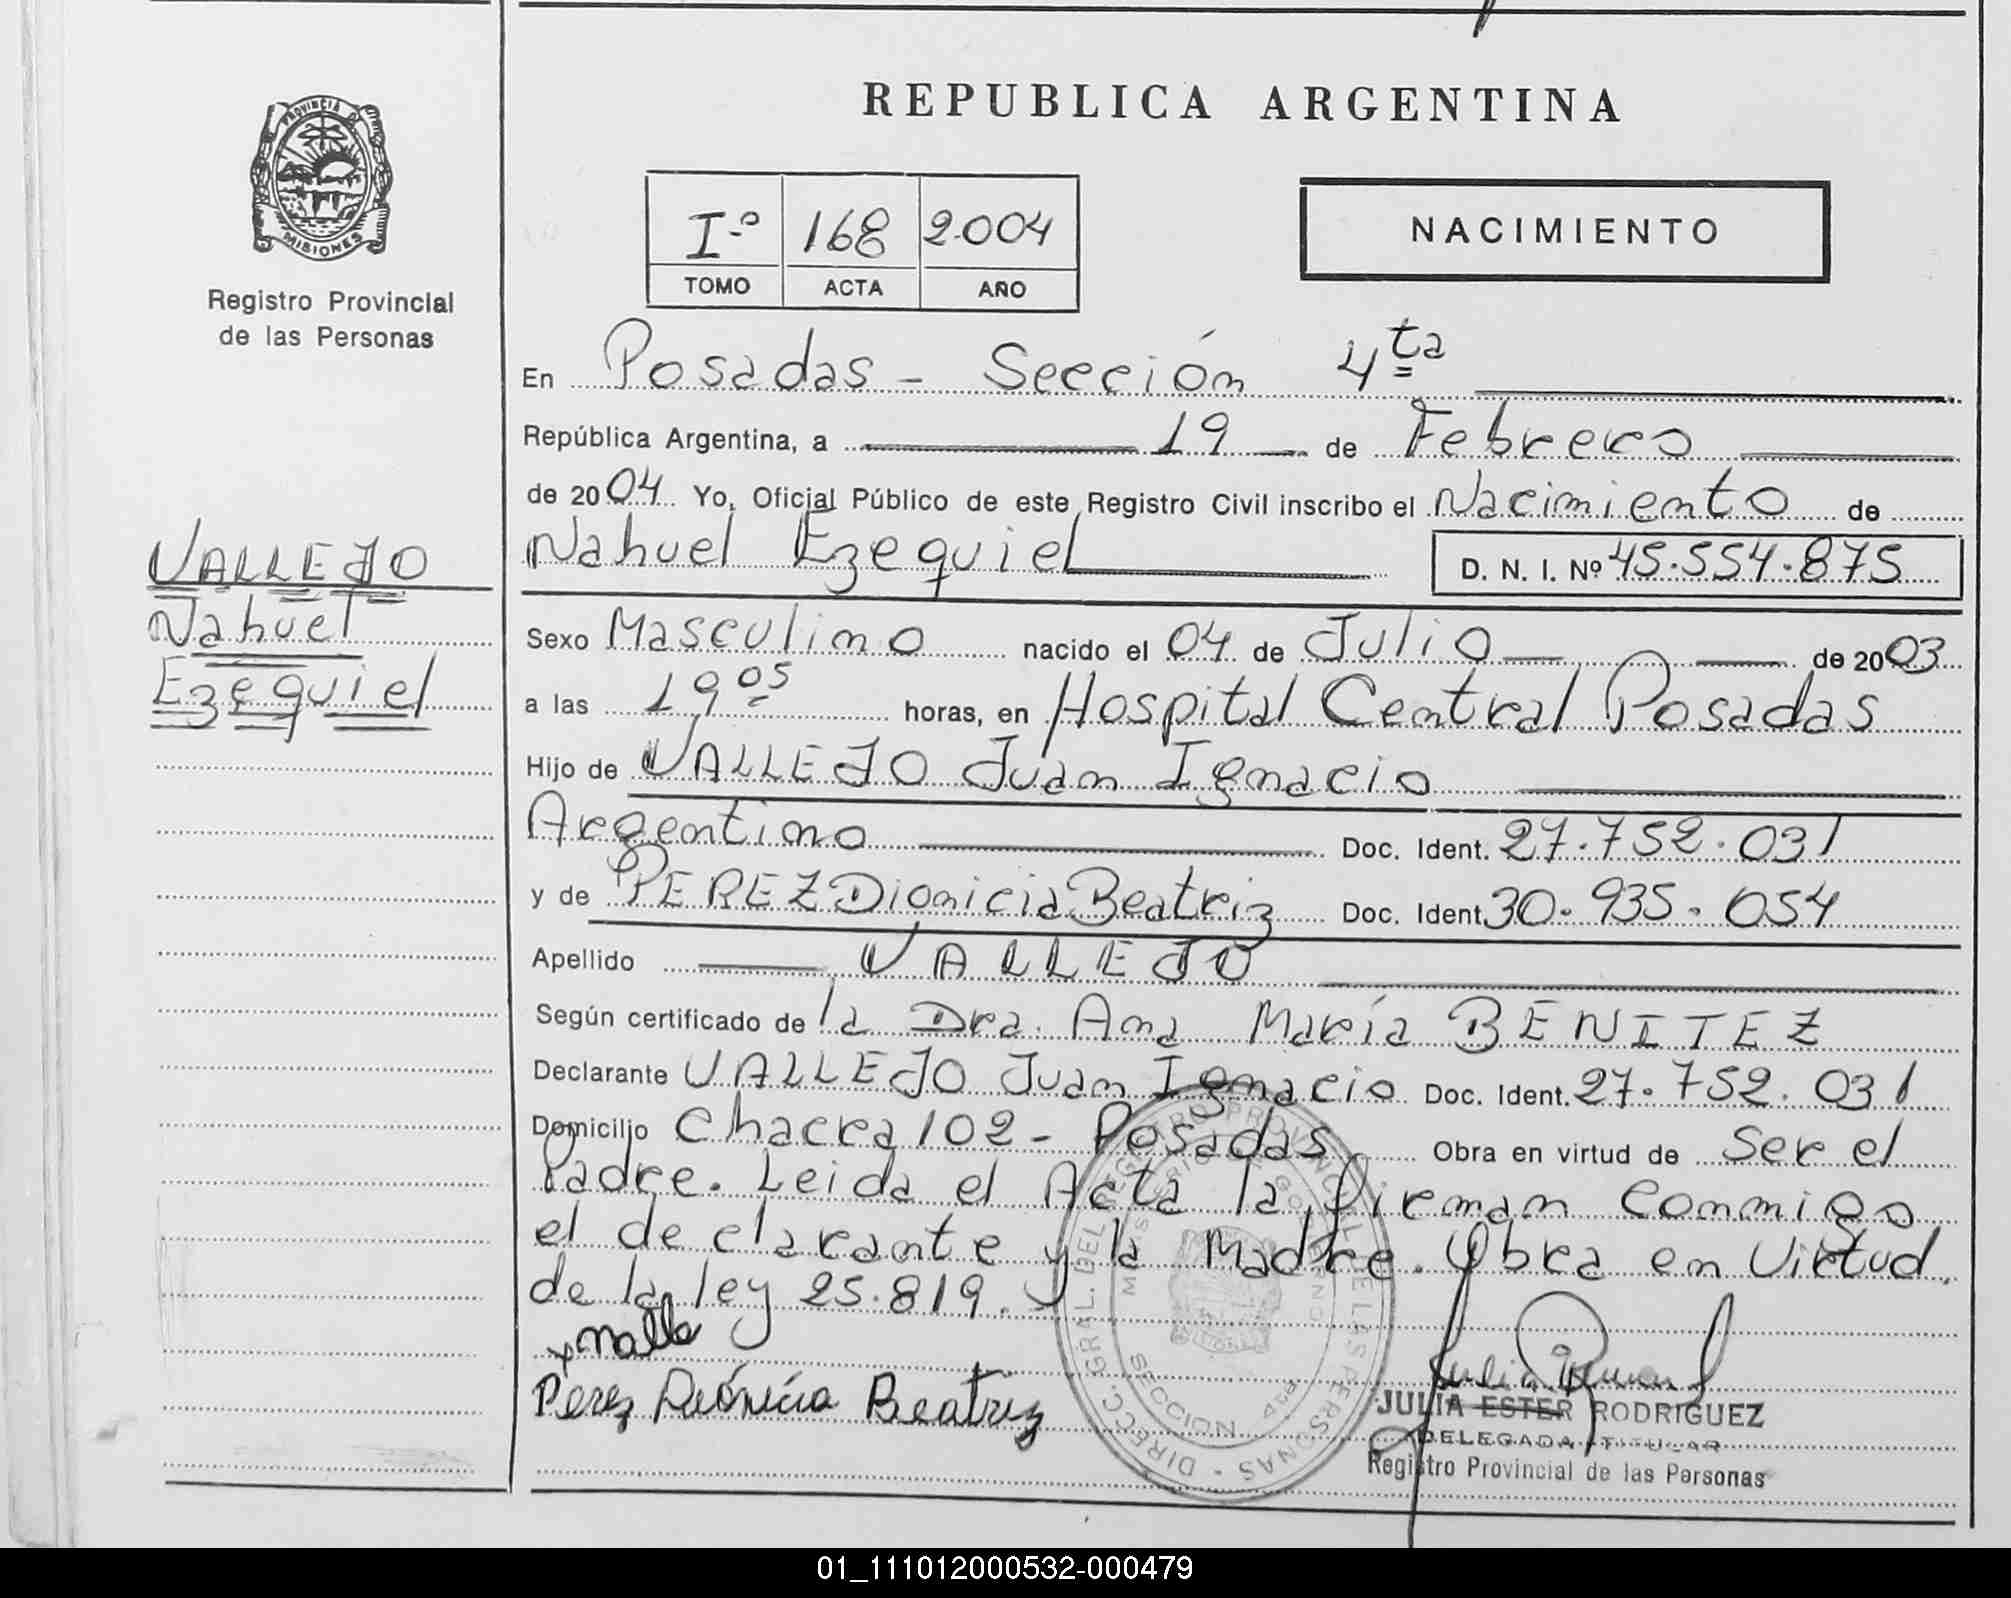 REPUBLICA ARGENTINA
PROVINCIA DE MISIONES
Registro Provincial
de las Personas
I-º 168 2.004
TOMO ACTA AÑO
NACIMIENTO
En Posadas - Sección 4ta
República Argentina, a 19 de Febrero
de 2004 Yo, Oficial Público de este Registro Civil inscribo el Nacimiento de
Nahuel Ezequiel D. N. I. Nº 45.554.875
VALLEJO
Nahuel
Ezequiel
Sexo Masculino nacido el 04 de Julio de 2003
a las 19 05 horas, en Hospital Central Posadas
Hijo de VALLEJO Juan Ignacio
Argentino Doc. Ident. 27.752.031
y de PEREZ Dionicia Beatriz Doc. Ident. 30.935.054
Apellido VALLEJO
Según certificado de la Dra. Ana María BENITEZ
Declarante VALLEJO Juan Ignacio Doc. Ident. 27.752.031
Domicilio Chacra 102 - Posadas Obra en virtud de Ser el
Padre. Leida el Acta la firman Conmigo
el declarante y la Madre. Obra en Virtud
de la ley 25.819.
Perez Dionicia Beatriz
DIRECC. GRAL. DEL REGISTRO PROVINCIAL DE LAS PERSONAS
SECCION 4ta
JULIA ESTER RODRIGUEZ
DELEGADA TITULAR
Registro Provincial de las Personas
01_111012000532-000479